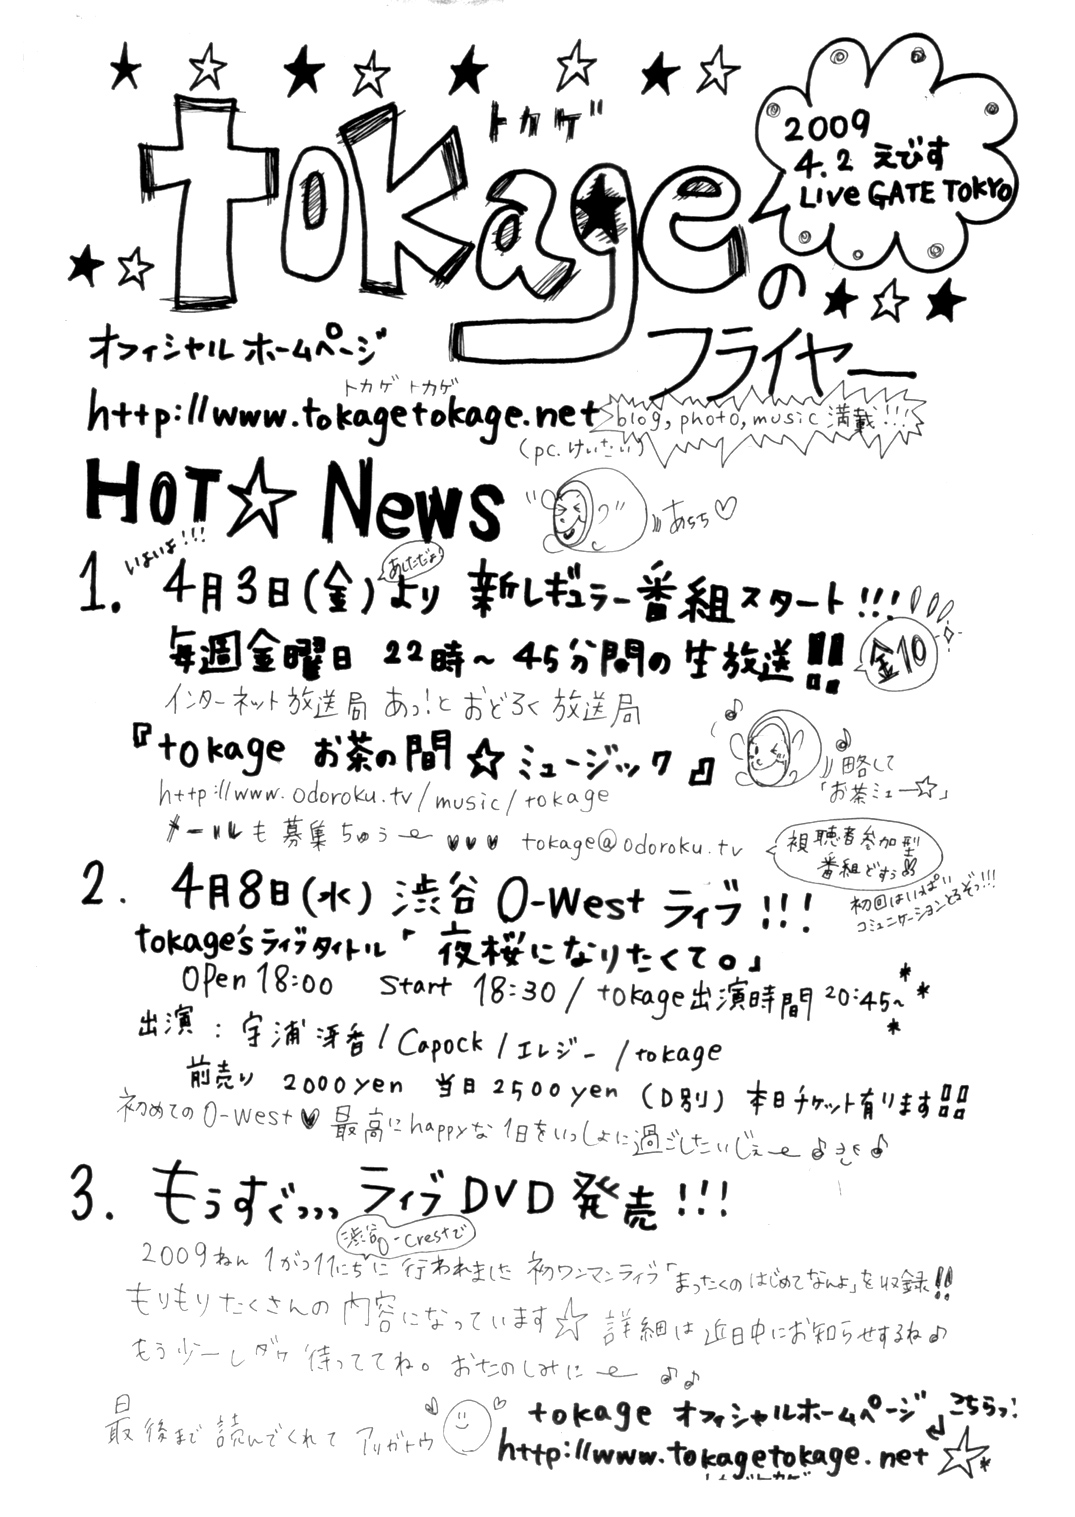 トカゲ
tokage
の
フライヤー
2009
4.2 えびす
Live GATE TOKYO
オフィシャル ホームページ
トカゲ トカゲ
http://www.tokagetokage.net
blog, photo, music 満載!!!
(pc.けいたい)
HOT☆News
あちち♡
いよいよ!!!
あしただよ!
1. 4月3日(金)より 新レギュラー番組スタート!!!
毎週金曜日 22時～45分間の生放送!!
金10
インターネット放送局 あっ!とおどろく放送局
『tokage お茶の間☆ミュージック』
略して
「お茶ミュー☆」
http://www.odoroku.tv/music/tokage
メールも募集ちゅうー ♥♥♥ tokage@odoroku.tv
視聴者参加型
番組どすぅ
初回はいっぱい
コミュニケーションとるぞっ!!!
2. 4月8日(水) 渋谷 O-West ライブ!!!
tokage'sライブタイトル「夜桜になりたくて。」
open 18:00 start 18:30 / tokage出演時間 20:45~
出演:宇浦冴香/Capock/エレジー/tokage
前売り 2000yen 当日2500yen (D別) 本日チケット有ります!!
初めてのO-West♥最高にhappyな1日をいっしょに過ごしたいじぇー♪
3. もうすぐっっっ ライブDVD発売!!!
渋谷O-crestで
2009ねん 1がつ11にちに 行われました 初ワンマンライブ「まったくのはじめてなんよ」を収録!!
もりもりたくさんの内容になっています☆ 詳細は近日中にお知らせするね♪
もう少ーしダケ待っててね。おたのしみにー ♪♪
最後まで読んでくれて アリガトウ
tokage オフィシャルホームページ こちらっ!
http://www.tokagetokage.net